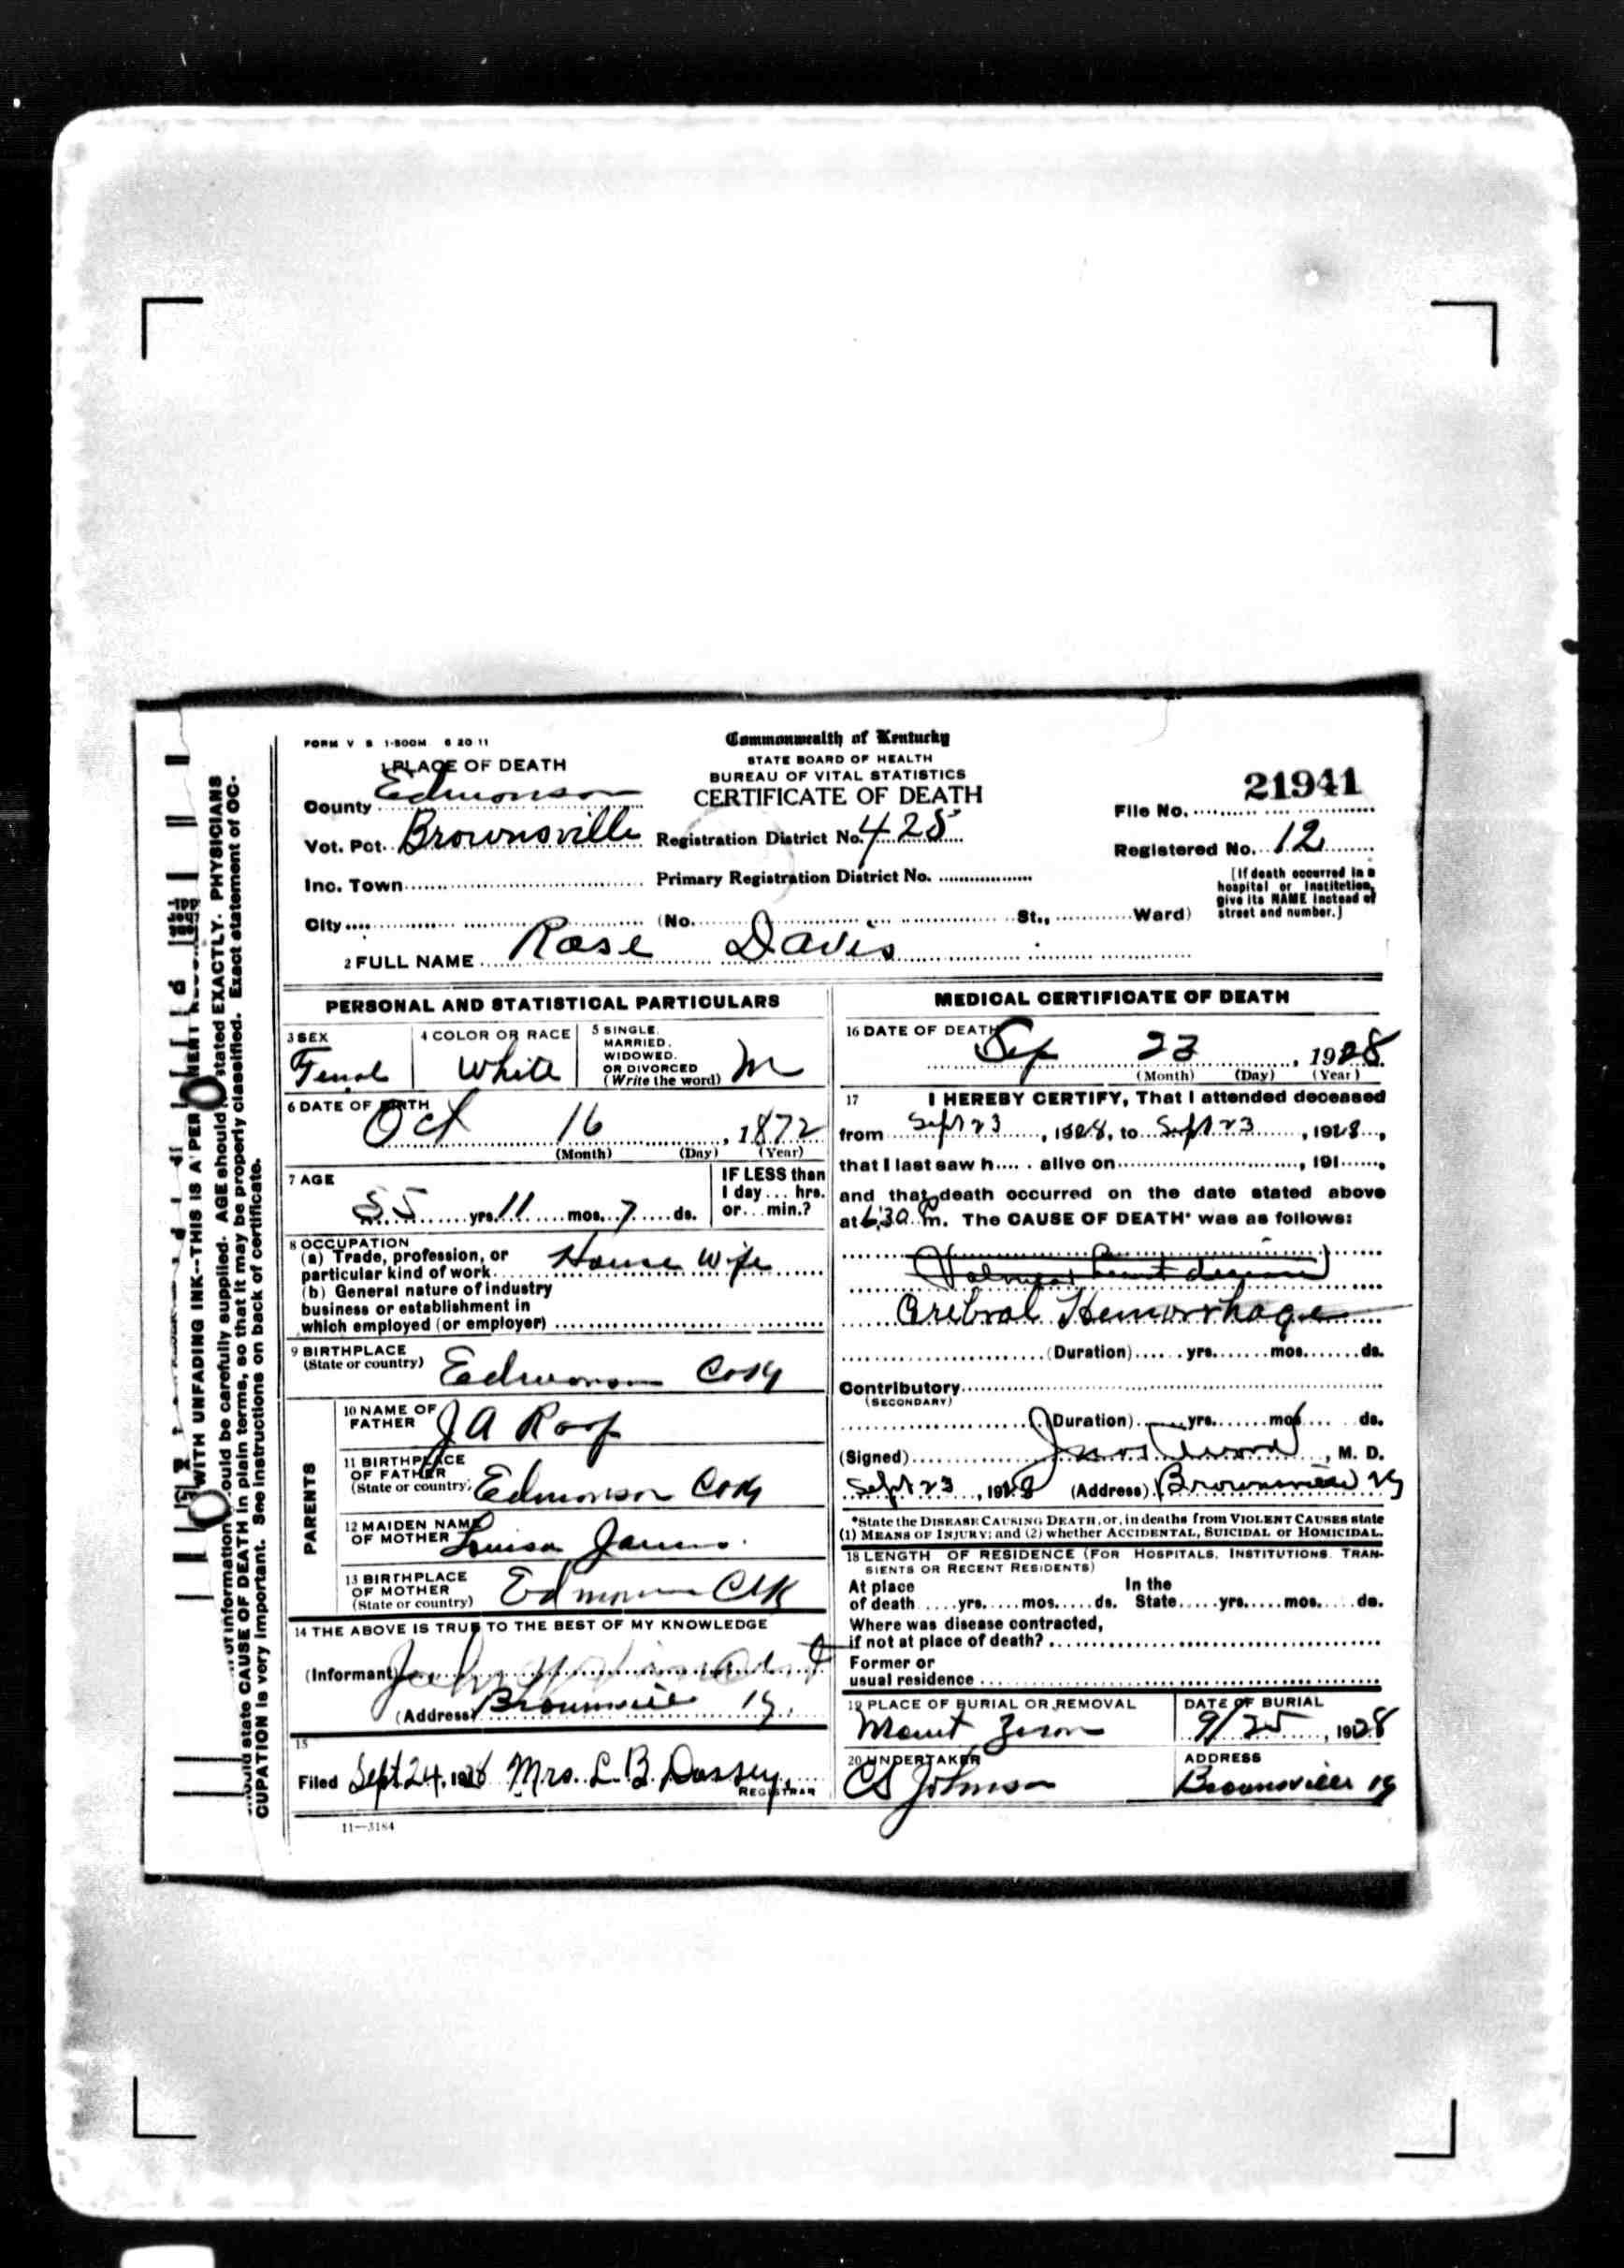 FORM V S 1-500M 6 20 11
Commonwealth of Kentucky
STATE BOARD OF HEALTH
BUREAU OF VITAL STATISTICS
CERTIFICATE OF DEATH
1 PLACE OF DEATH
County Edmonson
Vot. Pct. Brownsville
Registration District No. 428
Inc. Town
Primary Registration District No.
File No. 21941
Registered No. 12
[If death occurred in a
hospital or institution,
give its NAME instead of
street and number.]
City (No. St., Ward)
2 FULL NAME Rose Davis
PERSONAL AND STATISTICAL PARTICULARS
3 SEX
Femal
4 COLOR OR RACE
White
5 SINGLE,
MARRIED,
WIDOWED,
OR DIVORCED
(Write the word) M
6 DATE OF BIRTH
Oct 16, 1872
(Month) (Day) (Year)
7 AGE
55 yrs. 11 mos. 7 ds.
IF LESS than
1 day... hrs.
or... min.?
8 OCCUPATION
(a) Trade, profession, or
particular kind of work House Wife
(b) General nature of industry
business or establishment in
which employed (or employer)
9 BIRTHPLACE
(State or country) Edmonson Co Ky
PARENTS
10 NAME OF
FATHER J A Roof
11 BIRTHPLACE
OF FATHER
(State or country) Edmonson Co Ky
12 MAIDEN NAME
OF MOTHER Louisa
13 BIRTHPLACE
OF MOTHER
(State or country)
14 THE ABOVE IS TRUE TO THE BEST OF MY KNOWLEDGE
(Informant) John
(Address)
15
Filed Sept 24, 1928 Mrs. L. B. Dossey
REGISTRAR
11-3184
MEDICAL CERTIFICATE OF DEATH
16 DATE OF DEATH
Sep 23, 1928
(Month) (Day) (Year)
17 I HEREBY CERTIFY, That I attended deceased
from Sept 23, 1928, to Sept 23, 1928,
that I last saw h.... alive on, 191,
and that death occurred on the date stated above
at 6:30 P.m. The CAUSE OF DEATH* was as follows:
heart disease
Crebral Hemorrhage
(Duration) yrs. mos. ds.
Contributory
(SECONDARY)
(Duration) yrs. mos. ds.
(Signed), M. D.
Sept 23, 1928 (Address)
*State the DISEASE CAUSING DEATH, or, in deaths from VIOLENT CAUSES state
(1) MEANS OF INJURY; and (2) whether ACCIDENTAL, SUICIDAL or HOMICIDAL.
18 LENGTH OF RESIDENCE (FOR HOSPITALS, INSTITUTIONS, TRAN-
SIENTS OR RECENT RESIDENTS)
At place
of death yrs. mos. ds.
In the
State yrs. mos. ds.
Where was disease contracted,
if not at place of death?
Former or
usual residence
19 PLACE OF BURIAL OR REMOVAL
Mount Zion
DATE OF BURIAL
9/25, 1928
20 UNDERTAKER
CS Johnson
ADDRESS
Brownsville Ky
WITH UNFADING INK--THIS IS A PER
ould be carefully supplied. AGE should stated EXACTLY. PHYSICIANS
should state CAUSE OF DEATH in plain terms, so that it may be properly classified. Exact statement of OC-
CUPATION is very important. See instructions on back of certificate.